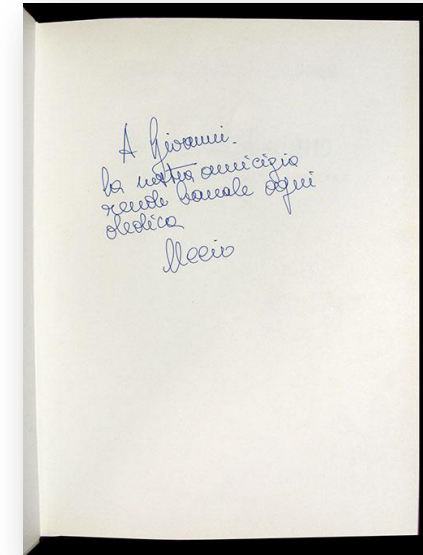 A Giovanni.
la nostra amicizia
rende banale ogni
dedica